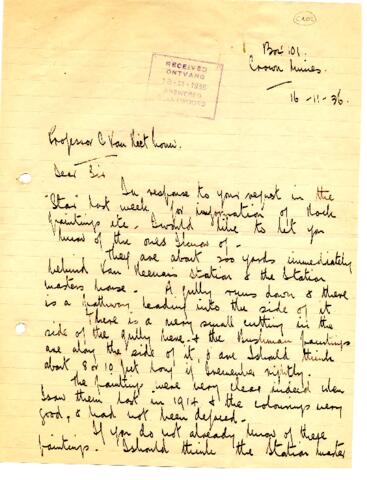 Box 101.
Crown Mines.
16-11-36.
RECEIVED
ONTVANG
18-11-1936
ANSWERED
Professor C Van Riet Louw.
Dear Sir
In response to your request in the
"Star" last week for information of Rock
paintings etc. I would like to let you
know of the ones I know of -
They are about 200 yards immediately
behind Van Reenan Station & the Station
masters house. A gully runs down & there
is a pathway leading into the side of it
There is a very small cutting in the
side of the gully here & the Bushman paintings
are along the side of it, & are I should think
about 8 or 10 feet long if I remember rightly -
The paintings were very clear indeed when
I saw them last in 1914 & the colourings very
good, & had not been defaced -
If you do not already know of these
paintings. I should think the Station Master